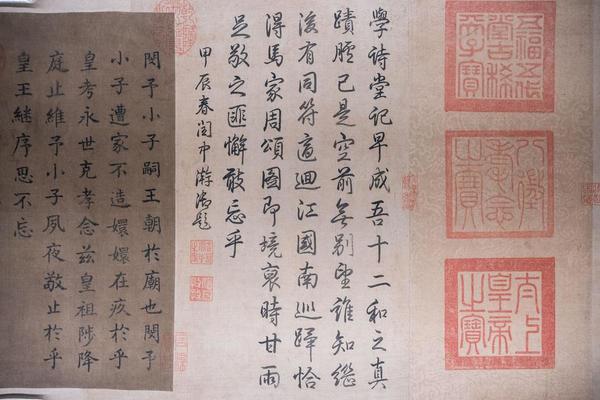 五福五代
堂古稀
天子寶
八徵
耄念
之寶
太上
皇帝
之寶
學詩堂記早成吾十二和之真
蹟臚已是空前無別望誰知繼
後有同符適迴江國南巡蹕恰
得馬家周頌圖即境裒時甘雨
足敬之匪懈敢忘乎
甲辰春閏中澣御題
閔予小子嗣王朝於廟也閔予
小子遭家不造嬛嬛在疚於乎
皇考永世克孝念茲皇祖陟降
庭止維予小子夙夜敬止於乎
皇王繼序思不忘